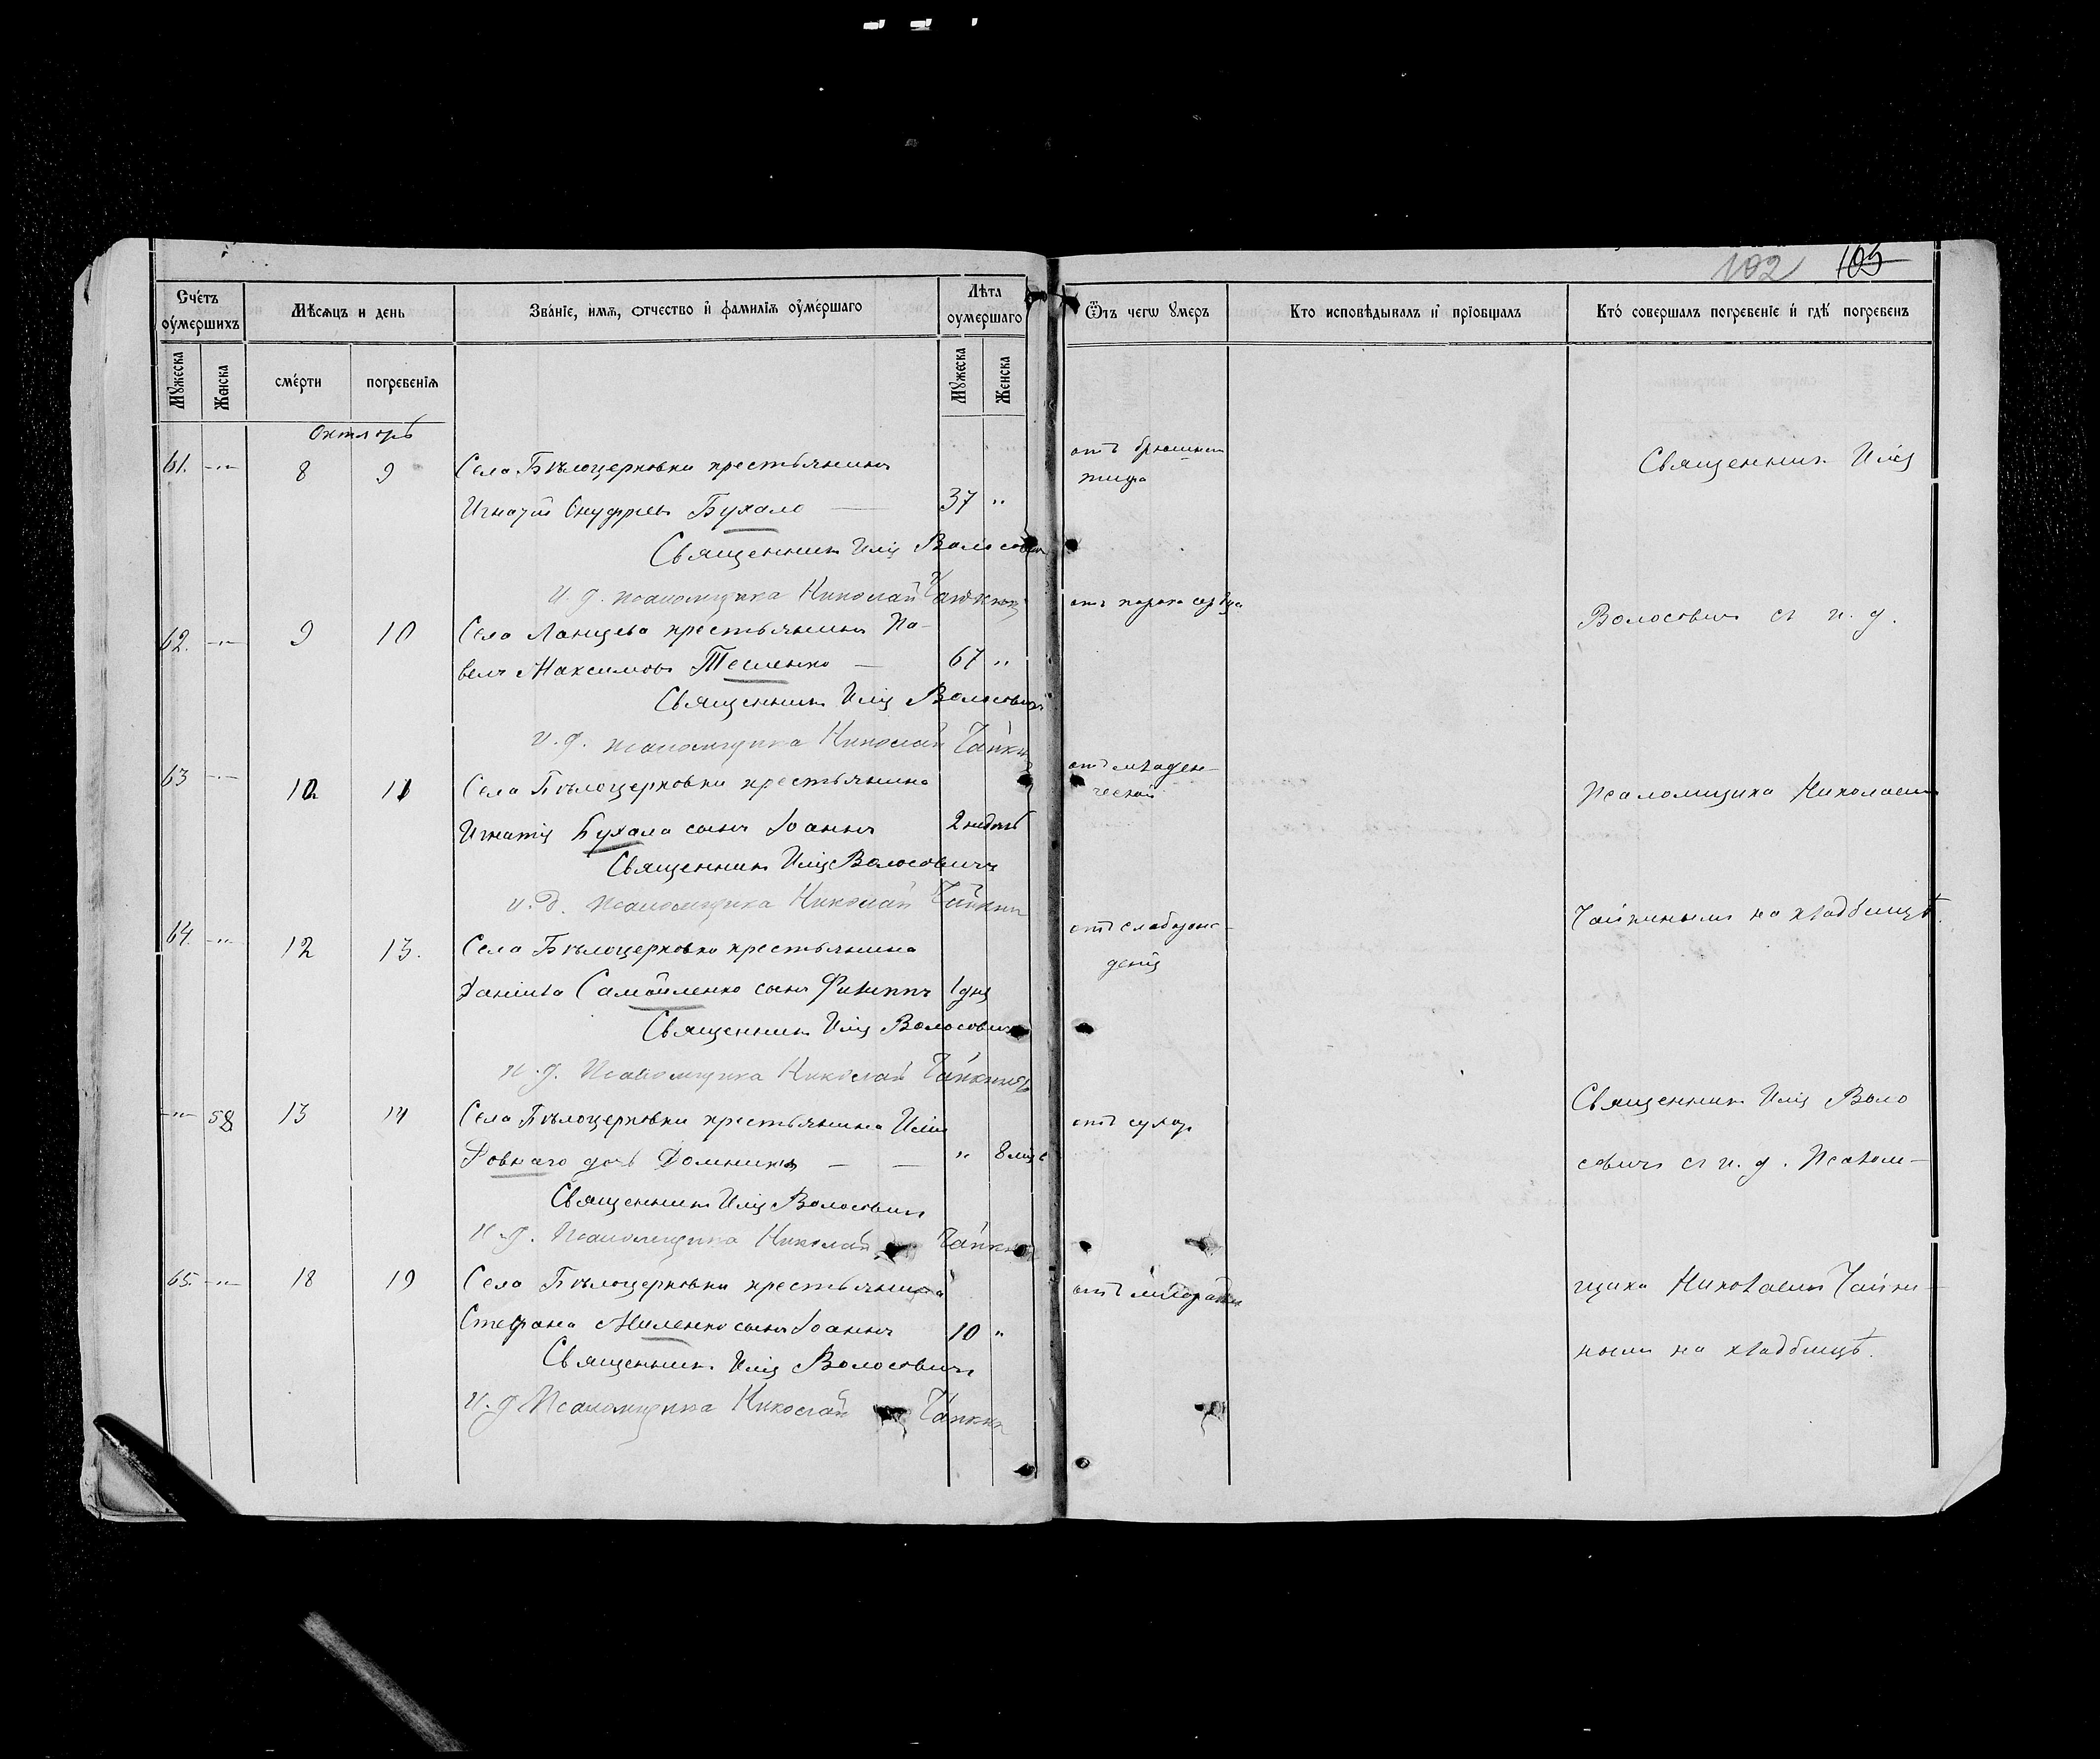 102 103
Счетъ оумершихъ
Мѣсяцъ и день
Званіе, имя, отчество и фамилія оумершаго
Лѣта оумершаго
Отъ чегѡ умеръ
Кто исповѣдывалъ и пріобщалъ
Кто совершалъ погребеніе и гдѣ погребенъ
Мужеска
Женска
смерти
погребенія
Мужеска
Женска
Октябрь
61. -"- 8 9 Села Бѣлоцерковки крестьянинъ
Игнатій Онуфріевъ Бухало — 37 "
отъ брюшного
тифа
Священникъ Илія
Священникъ Илія Волосовичъ
и. д. псаломщика Николай Чайкинъ
62. -"- 9 10 Села Ланцева крестьянинъ Па-
велъ Максимовъ Тешенко — 67 "
отъ порока сердца
Волосовичъ съ и. д.
Священникъ Илія Волосовичъ
и. д. псаломщика Николай Чайкинъ
63 -"- 10 11 Села Бѣлоцерковки крестьянина
Игнатія Бухала сынъ Іоаннъ 2 недѣль
отъ младен-
ческой
Псаломщика Николаемъ
Священникъ Илія Волосовичъ
и. д. псаломщика Николай Чайкинъ
64. -"- 12 13. Села Бѣлоцерковки крестьянина
Даніила Самойленко сынъ Филиппъ 1 дня
отъ слаборож-
денія
Чайкинымъ на кладбищѣ.
Священникъ Илія Волосовичъ
и. д. Псаломщика Николай Чайкинъ
-"- 58 13 14 Села Бѣлоцерковки крестьянина Иліи
Ровнаго дочь Домникія — — " 8 мѣс
отъ сухот
Священникъ Илія Воло
совичъ съ и. д. Псалом-
Священникъ Илія Волосовичъ
и. д. Псаломщика Николай Чайкинъ
65. -"- 18 19 Села Бѣлоцерковки крестьянина
Стефана Миленко сынъ Іоаннъ 10 "
отъ
щика Николаемъ Чайки-
нымъ на кладбищѣ.
Священникъ Илія Волосовичъ
и. д. Псаломщика Николай Чайкинъ